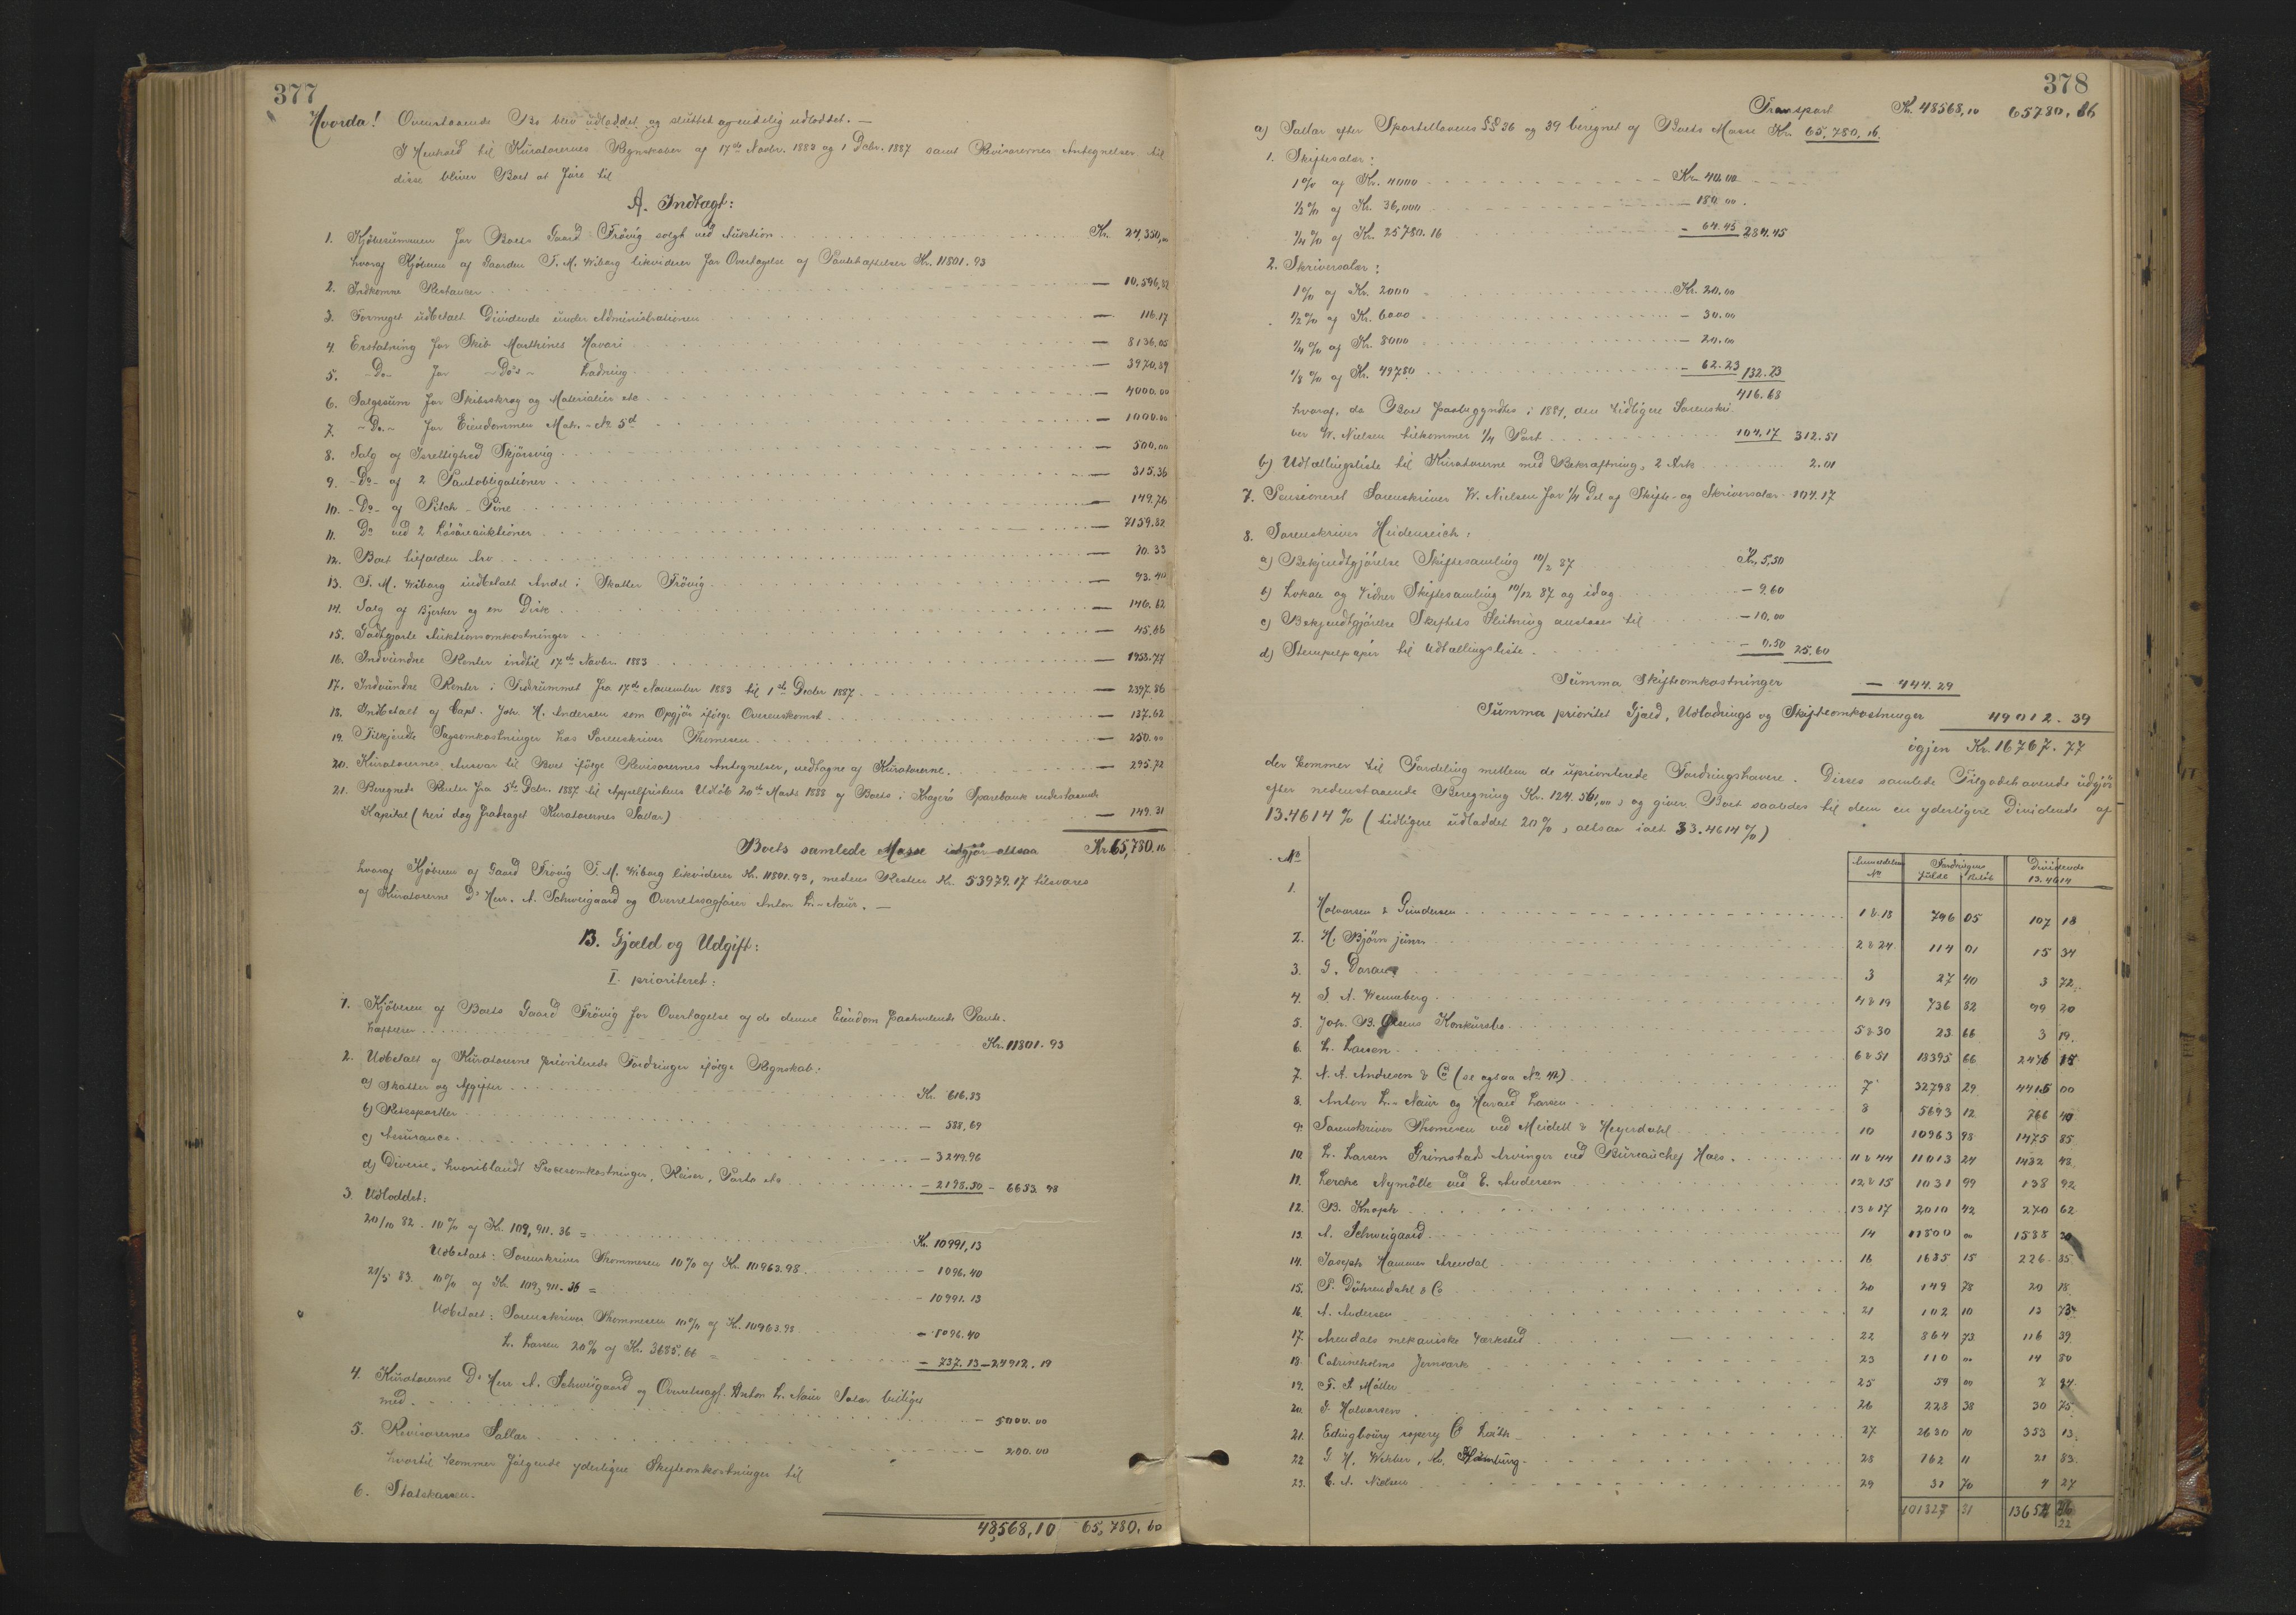 377
Hvorda! Ovenstaaende Bo blev udloddet og sluttet og endelig udloddet. —
I Henhold til Kuratorernes Regnskaber af 17de Novbr. 1883 og 1 Decbr. 1887 samt Revisorernes Antegnelser til
disse bliver Boet at føre til
A. Indtægt:
1. Kjøbesummen for Boets Gaard Frøvig solgt ved Auktion Kr. 24,350,00
hvoraf Kjøberen af Gaarden F. M. Wiborg likviderer for Overtagelse af Pantehæftelser Kr. 11801.93
2. Indkomne Restancer — 10,596,32
3. Formeget udbetalt Dividende under Administrationen — 116.17
4. Erstatning for Skib Marthines Havari — 8136,05
5. -Do- for -Do's- Ladning — 3970,89
6. Salgssum for Skibsskrog og Materialier etc — 4000.00
7. -Do.- for Eiendommen Matr. No 5d — 1000.00
8. Salg af Isrettighed Skjørsvig — 500,00
9. -Do- af 2 Pantobligationer — 315,36
10. -Do- af Pitch-Pine — 149.76
11. Do ved 2 Løsøreauktioner — 7159.82
12. Boet tilfalden Arv — 70.33
13. F. M. Wiborg indbetalt Andel i Skatter Frøvig — 93.40
14. Salg af Bjerker og en Disk — 146.62
15. Godtgjorte Auktionsomkostninger — 45.66
16. Indvundne Renter indtil 17de Novbr. 1883 — 1958.77
17. Indvundne Renter i Tidsrummet fra 17de November 1883 til 1ste Decbr 1887 — 2397.86
18. Indbetalt af Capt. Joh. H. Andersen som Opgjør ifølge Overenskomst — 137.62
19. Tilkjendte Sagsomkostninger hos Sorenskriver Thomesen — 250.00
20. Kuratorernes Ansvar til Boet ifølge Revisorernes Antegnelser, vedtagne af Kuratorerne. — 295.72
21. Beregnede Renter fra 5te Decbr. 1887 til Appelfristens Udløb 20de Marts 1888 af Boets i Kragerø Sparebank indestaaende
Kapital (heri dog fradraget Kuratorernes Sallar) — 149.31
Boets samlede Masse udgjør altsaa Kr 65,780.16
hvoraf Kjøberen af Gaard Frøvig F. M. Wiborg likviderer Kr. 11801.93, medens Resten Kr. 53979.17 tilsvares
af Kuratorerne Ds Herr. A. Schweigaard og Overretssagfører Anton L. Naur. —
B. Gjæld og Udgift:
I. prioriteret:
1. Kjøberen af Boets Gaard Frøvig for Overtagelse af de denne Eiendom paahvilende Pante-
hæftelser Kr. 11801.93
2. Udbetalt af Kuratorerne prioriterede Fordringer ifølge Regnskab:
a) Skatter og Afgifter Kr. 616.83
b) Retssportler — 588.69
c) Assurance — 3249.96
d) Diverse, hvoriblandt Procesomkostninger, Reiser, Porto etc — 2198.50 — 6653.98
3. Udloddet:
20/10 82. 10% af Kr. 109,911.36 = Kr. 10991,13
Udbetalt: Sorenskriver Thommesen 10% af Kr. 10963.98 — 1096.40
21/5 83. 10% af Kr. 109,911.36 = — 10991.13
Udbetalt: Sorenskriver Thommesen 10% af Kr. 10963.98 — 1096.40
L. Larsen 20% af Kr. 3685.66 = — 737.13 — 24912.19
4. Kuratorerne Ds Herr A. Schweigaard og Overretssagf. Anton L. Naur Salær billiges
med — 5000.00
5. Revisorernes Sallar — 200.00
hvortil kommer følgende yderligere Skifteomkostninger til
6. Statskassen.
48,568,10 65,780,60
378
Transport Kr. 48568,10 65780.66
a) Sallar efter Sportellovens §§ 36 og 39 beregnet af Boets Masse Kr. 65,780,16.
1. Skiftesalær:
1% af Kr. 4000 Kr. 40.00
1/2% af Kr. 36,000 — 180.00.
1/4% af Kr. 25780.16 — 64.45 284.45
2. Skriversalær:
1% af Kr. 2000 Kr. 20.00
1/2% af Kr. 6000 — 30.00
1/4% af Kr. 8000 — 20.00
1/8% af Kr. 49780 — 62.23 132.23
416.68
hvoraf, da Boet paabegyndtes i 1881, den tidligere Sorenskri-
ver W. Nielsen tilkommer 1/4 Part 104.17 312.51
b) Udtællingsliste til Kuratorerne med Bekræftning, 2 Ark 2.01
7. Pensioneret Sorenskriver W. Nielsen for 1/4 Del af Skifte- og Skriversalær 104.17
8. Sorenskriver Heidenreich:
a) Bekjendtgjørelse Skiftesamling 10/2 87 Kr. 5,50
b) Lokale og Vidner Skiftesamling 10/12 87 og idag — 9.60
c) Bekjendtgjørelse Skiftets Slutning ansættes til — 10,00
d) Stempelpapir til Udtællingsliste — 0.50 25.60
Summa Skifteomkostninger — 444.29
Summa prioritet Gjæld, Udlodnings og Skifteomkostninger 49012.39
igjen Kr. 16767.77
der kommer til Fordeling mellem de uprioriterede Fordringshavere. Disses samlede Tilgodehavende udgjør
efter nedenstaaende Beregning Kr. 124.561,00, og giver Boet saaledes til dem en yderligere Dividende af
13.4614% (tidligere udloddet 20%, altsaa ialt 33.4614%)
No Anmeldelsens No Fordringens fulde Beløb Dividende 13.4614
1. Halvorsen & Gundersen 1&18 796 05 107 18
2. H. Bjørn junr 2&24 114 01 15 34
3. G. 3 27 40 3 72
4. S. A. Wenneberg 4&19 736 82 99 20
5. Joh. B. Olsens Konkursbo 5&30 23 66 3 19
6. L. Larsen 6&51 18395 66 2476 15
7. N. A. Andresen & Co (se ogsaa No 42) 7 32798 29 4415 00
8. Anton L. Naur og Havard Larsen 8 5693 12 766 40
9. Sorenskriver Thomesen ved Meidell & Heyerdahl 10 10963 98 1475 85
10. L. Larsen Grimstads Arvinger ved Bureauchef Haes. 11&44 11013 24 1482 48
11. Lerche Nymølle ved E. Andersen 12&15 1031 99 138 92
12. B. Knoph 13&17 2010 42 270 62
13. A. Schweigaard 14 11800 00 1588
14. Joseph Hammer Arendal 16 1635 15 226 35
15. P. Dührendahl & Co 20 149 78 20 18
16. A. Andersen 21 102 10 13 73
17. Arendals mekaniske Værksted 22 864 73 116 39
18. Catrineholms Jernværk 23 110 00 14 80
19. F. P. Møller 25 59 00 7 94
20. G. Halvorsen 26 228 38 30 75
21. Edingboury ropery C Leith 27 2630 10 353 13
22. G. H. Wekker, Hamburg 28 162 11 21 83
23. C. A. Nielsen 29 31 70 4 27
101327 31 22